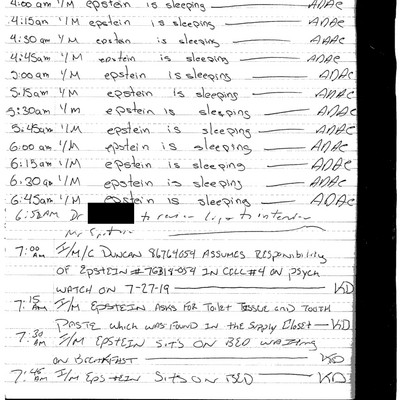 4:00 am I/M epstein is sleeping ADAC
4:15am I/M epstein is sleeping ADAC
4:30 am I/M epstein is sleeping ADAC
4:45am I/M epstein is sleeping ADAC
5:00am I/M epstein is sleeping ADAC
5:15am I/M epstein is sleeping ADAC
5:30am I/M epstein is sleeping ADAC
5:45am I/M epstein is sleeping ADAC
6:00am I/M epstein is sleeping ADAC
6:15am I/M epstein is sleeping ADAC
6:30am I/M epstein is sleeping ADAC
6:45am I/M epstein is sleeping ADAC
6:50AM Dr to
Mr
7:00 AM I/M/C DUNCAN 86764054 ASSUMES RESPONSIBILITY
OF EPSTEIN #76318-054 IN CELL #4 ON PSYCH
WATCH ON 7-27-19 KD
7:15 AM I/M EPSTEIN ASKS FOR TOILET TISSUE AND TOOTH
PASTE which was found in the Supply Closet KD
7:30 AM I/M EPSTEIN SITS ON BED WAITING
ON BREAKFAST KD
7:45 AM I/M EPSTEIN SITS ON BED KD